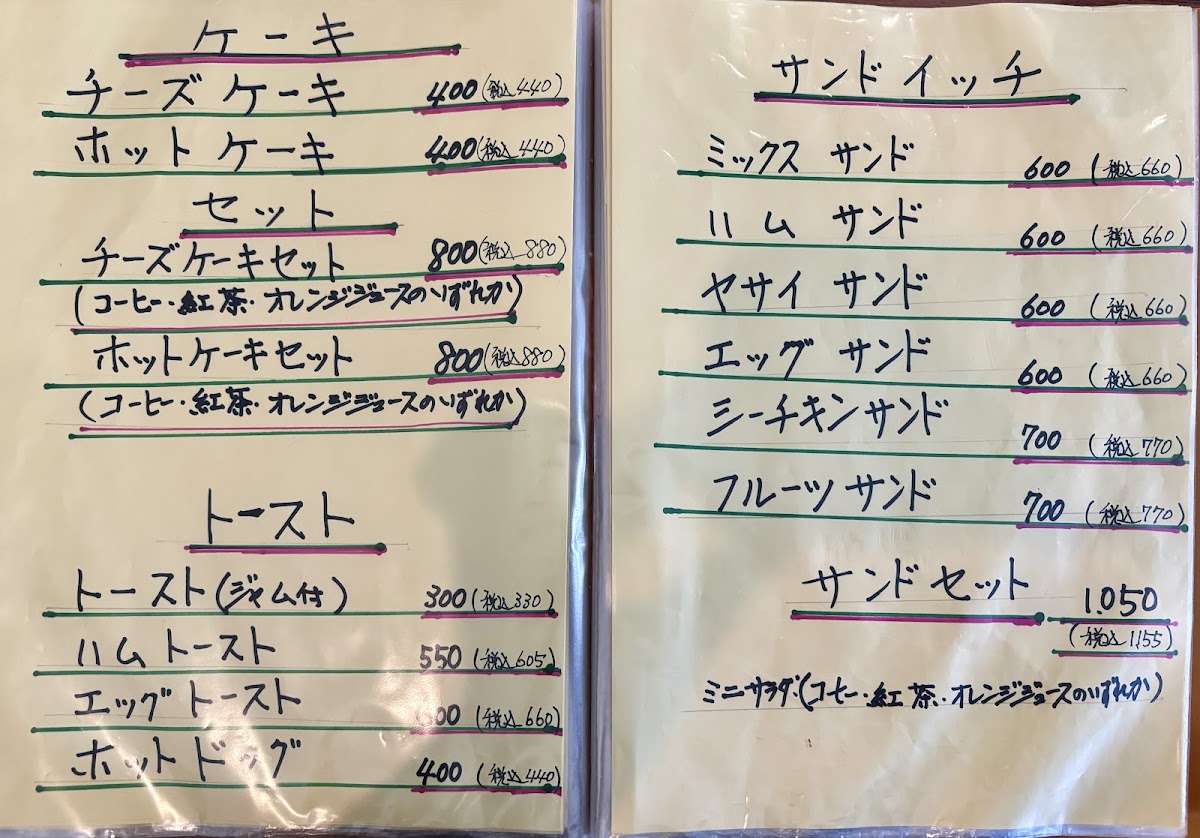 ケーキ
チーズケーキ 400(税込440)
ホットケーキ 400(税込440)
セット
チーズケーキセット 800(税込880)
(コーヒー・紅茶・オレンジジュースのいずれか)
ホットケーキセット 800(税込880)
(コーヒー・紅茶・オレンジジュースのいずれか)
トースト
トースト(ジャム付) 300(税込330)
ハムトースト 550(税込605)
エッグトースト 600(税込660)
ホットドッグ 400(税込440)
サンドイッチ
ミックスサンド 600(税込660)
ハムサンド 600(税込660)
ヤサイサンド 600(税込660)
エッグサンド 600(税込660)
シーチキンサンド 700(税込770)
フルーツサンド 700(税込770)
サンドセット 1.050
(税込1155)
ミニサラダ・(コーヒー・紅茶・オレンジジュースのいずれか)